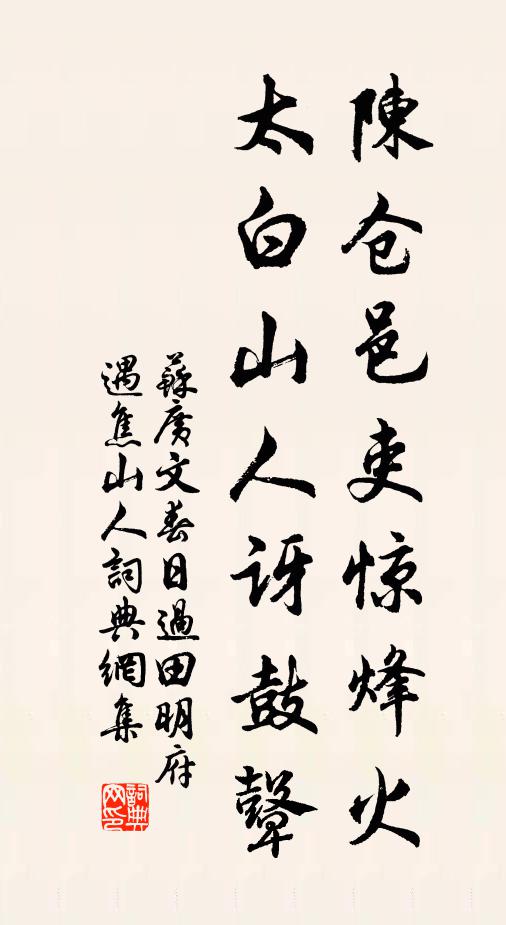 陳仓邑吏惊烽火
太白山人讶鼓鼙
蘇廣文春日過田明府
遇焦山人詞典網集
詞典网印